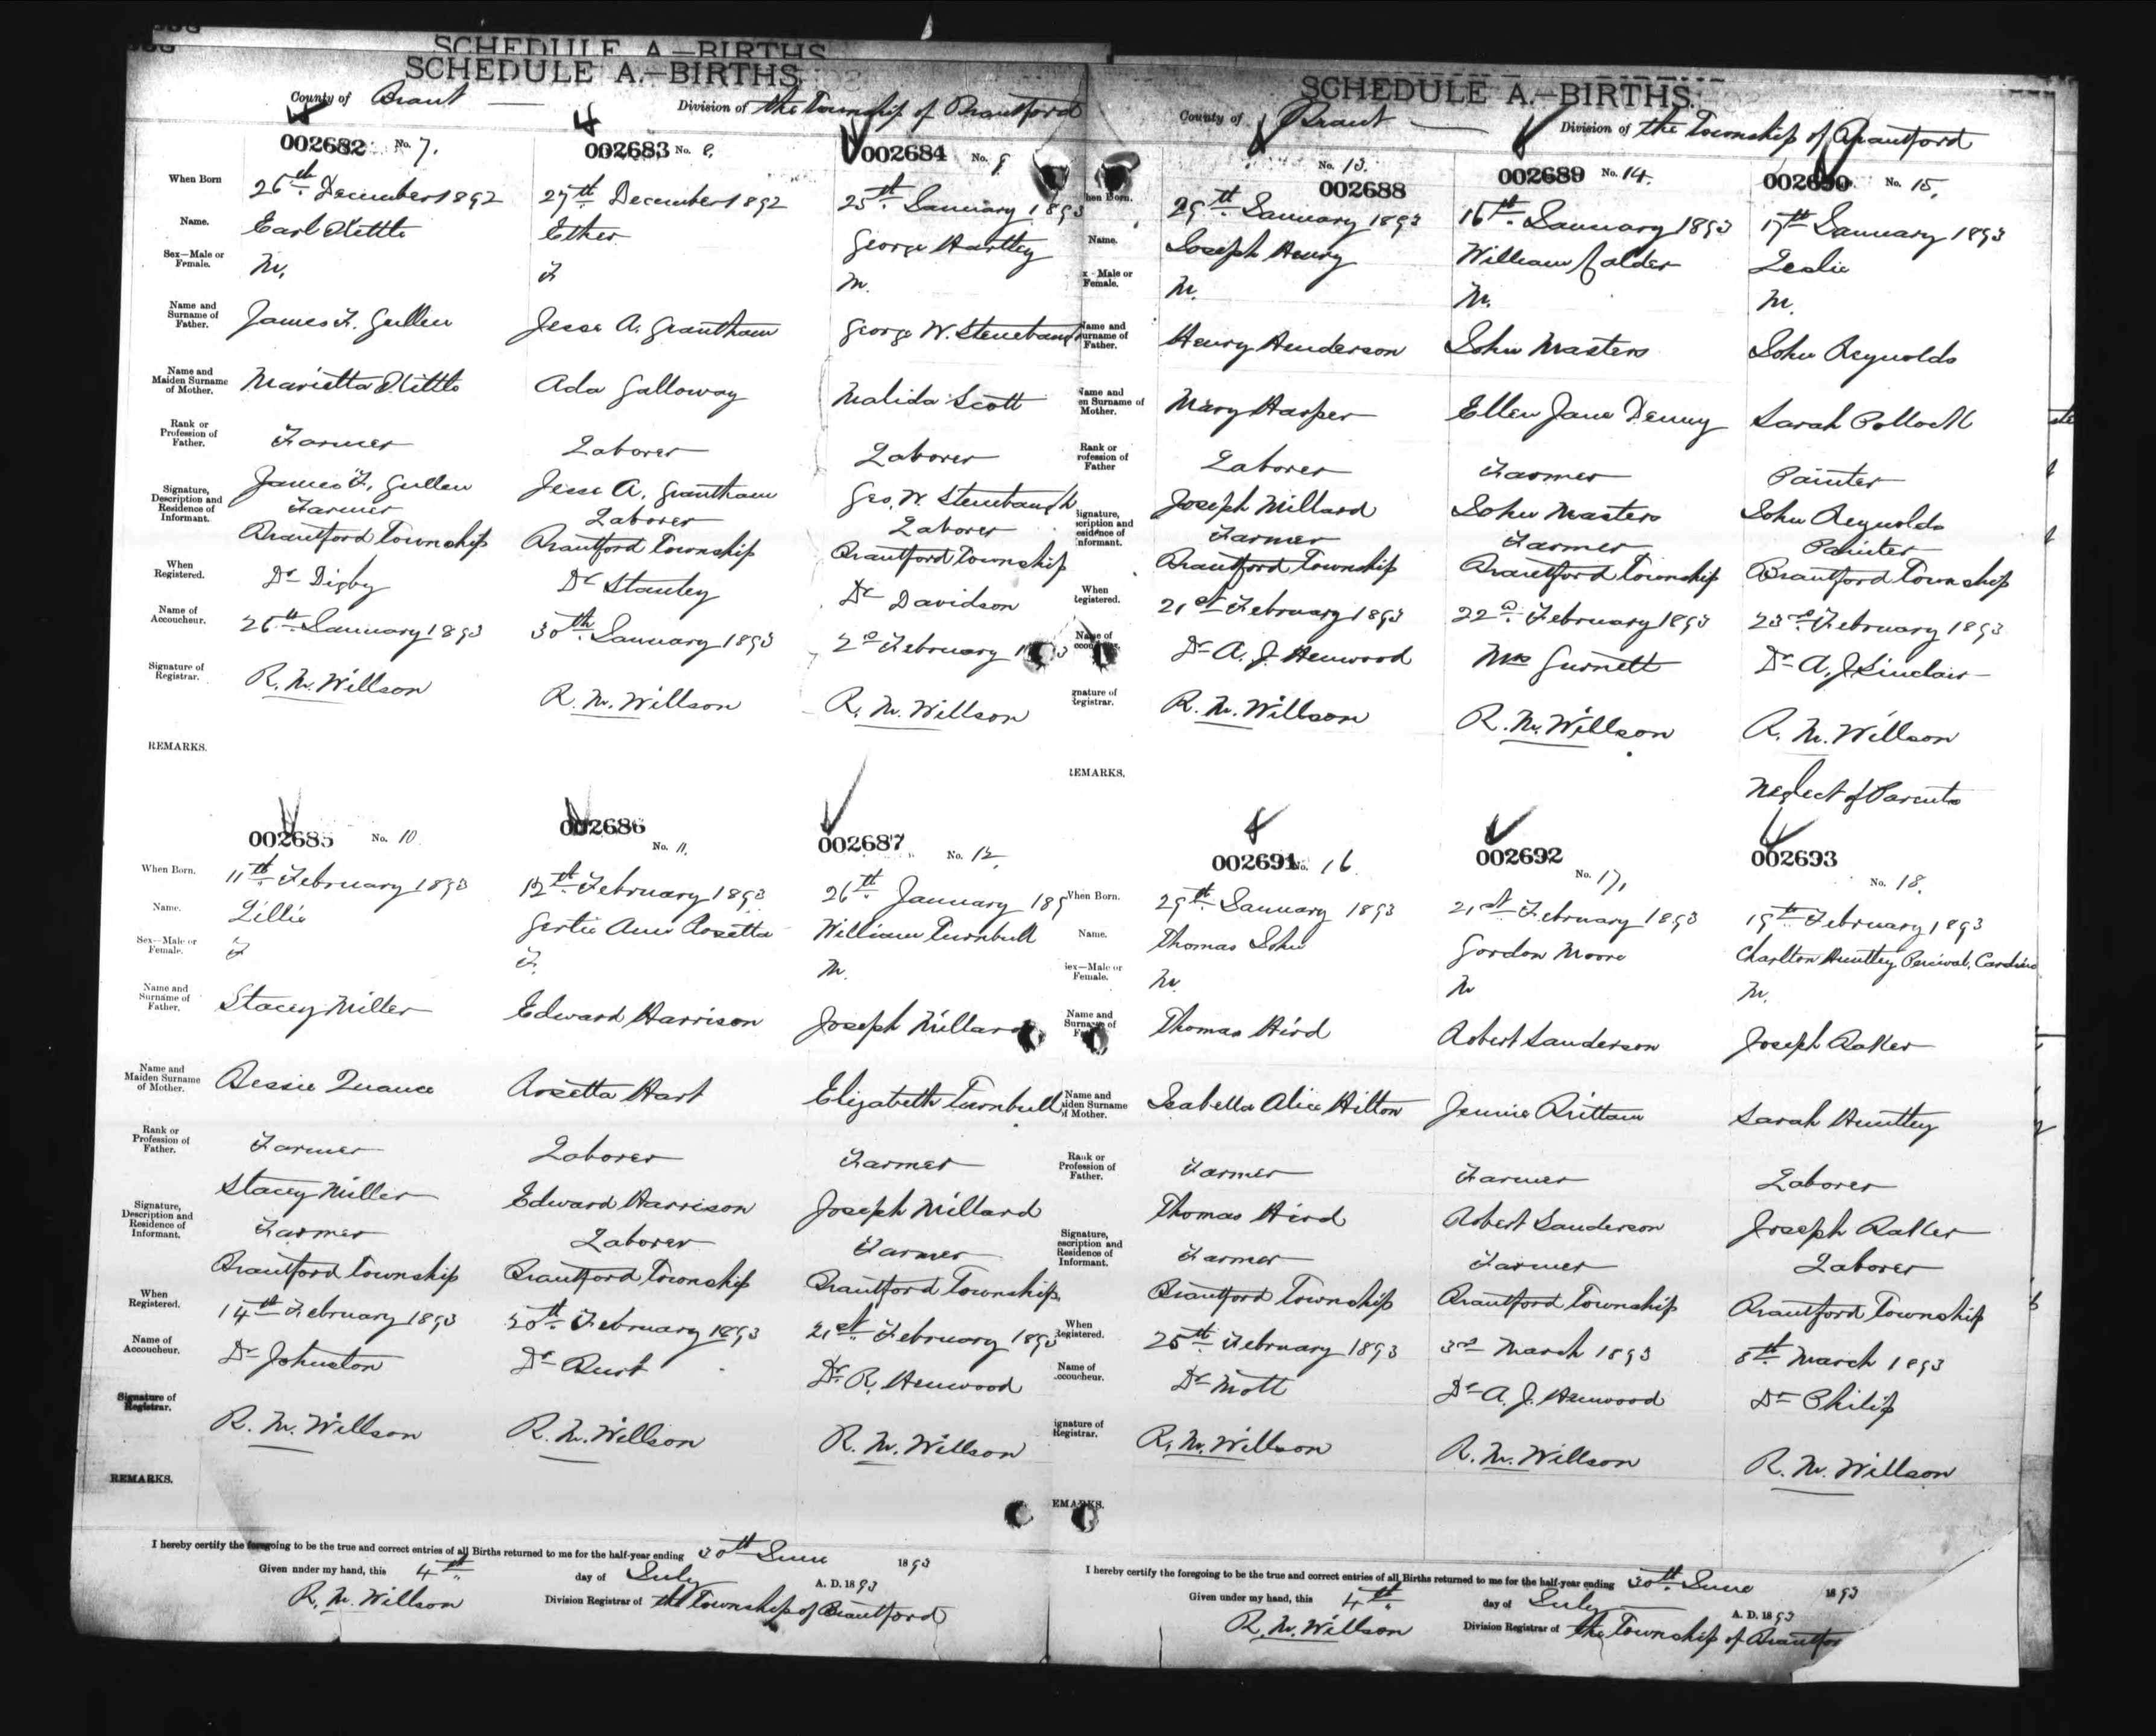 SCHEDULE A.—BIRTHS
SCHEDULE A.—BIRTHS.
County of Brant
Division of the Township of Brantford
002682 No. 7.
002683 No. 8.
002684 No. 9
When Born 26th December 1892
27th December 1892
25th January 1893
Name. Earl Kittle
Ether
George Hartley
Sex—Male or Female. M.
F
M.
Name and Surname of Father. James F. Gullen
Jesse A. Grantham
George W. Stenebaugh
Name and Maiden Surname of Mother. Marietta Kittle
Ada Galloway
Malida Scott
Rank or Profession of Father. Farmer
Laborer
Laborer
Signature, Description and Residence of Informant. James F. Gullen
Farmer
Brantford Township
Jesse A. Grantham
Laborer
Brantford Township
Geo. W. Stenebaugh
Laborer
Brantford Township
When Registered. Dr Digby
Dr Stanley
Dr Davidson
Name of Accoucheur. 26th January 1893
30th January 1893
2d February
Signature of Registrar. R. M. Willson
R. M. Willson
R. M. Willson
REMARKS.
002685 No. 10
002686 No. 11.
002687 No. 12.
When Born. 11th February 1893
12th February 1893
26th January 189
Name. Lillie
Gertie Ann Rosetta
William Turnbull
Sex—Male or Female. F
F.
M.
Name and Surname of Father. Stacey Miller
Edward Harrison
Joseph Millard
Name and Maiden Surname of Mother. Bessie Quance
Rosetta Hart
Elizabeth Turnbull
Rank or Profession of Father. Farmer
Laborer
Farmer
Signature, Description and Residence of Informant. Stacey Miller
Farmer
Brantford Township
Edward Harrison
Laborer
Brantford Township
Joseph Millard
Farmer
Brantford Township
When Registered. 14th February 1893
20th February 1893
21st February 1893
Name of Accoucheur. Dr Johnston
Dr Burt
Dr. R. Henwood
Signature of Registrar. R. M. Willson
R. M. Willson
R. M. Willson
REMARKS.
I hereby certify the foregoing to be the true and correct entries of all Births returned to me for the half-year ending 30th June 1893
Given under my hand, this 4th day of July A. D. 1893
R. M. Willson Division Registrar of the Township of Brantford
SCHEDULE A.—BIRTHS.
County of Brant
Division of the Township of Brantford
No. 13.
002688
002689 No. 14.
002690 No. 15.
hen Born. 29th January 1893
16th January 1893
17th January 1893
Name. Joseph Henry
William Calder
Leslie
x - Male or Female. M.
M.
M.
Name and urname of Father. Henry Henderson
John Masters
John Reynolds
Name and en Surname of Mother. Mary Harper
Ellen Jane Denny
Sarah Pollock
Rank or rofession of Father Laborer
Farmer
Painter
Signature, scription and esidence of nformant. Joseph Millard
Farmer
Brantford Township
John Masters
Farmer
Brantford Township
John Reynolds
Painter
Brantford Township
When Registered. 21st February 1893
22d February 1893
23rd February 1893
Name of Dr A. J. Henwood
Mrs Gurnett
Dr A. J. Sinclair
gnature of Registrar. R. M. Willson
R. M. Willson
R. M. Willson
REMARKS.
Neglect of Parents
002691 No. 16
002692
No. 17.
002693
No. 18.
When Born. 29th January 1893
21st February 1893
19th February 1893
Name. Thomas John
Gordon Moore
Charlton Huntley Percival Cardino
Sex—Male or Female. M.
M
M.
Name and Surname of Thomas Hird
Robert Sanderson
Joseph Baker
Name and iden Surname of Mother. Isabella Alice Hilton
Jennie Brittain
Sarah Huntley
Rank or Profession of Father. Farmer
Farmer
Laborer
Signature, escription and Residence of Informant. Thomas Hird
Farmer
Brantford Township
Robert Sanderson
Farmer
Brantford Township
Joseph Baker
Laborer
Brantford Township
When Registered. 25th February 1893
3rd March 1893
8th March 1893
Name of ccoucheur. Dr Mott
Dr A. J. Henwood
Dr Philip
ignature of Registrar. R. M. Willson
R. M. Willson
R. M. Willson
EMARKS.
I hereby certify the foregoing to be the true and correct entries of all Births returned to me for the half-year ending 30th June 1893
Given under my hand, this 4th day of July A. D. 1893
R. M. Willson Division Registrar of the Township of Brantfor